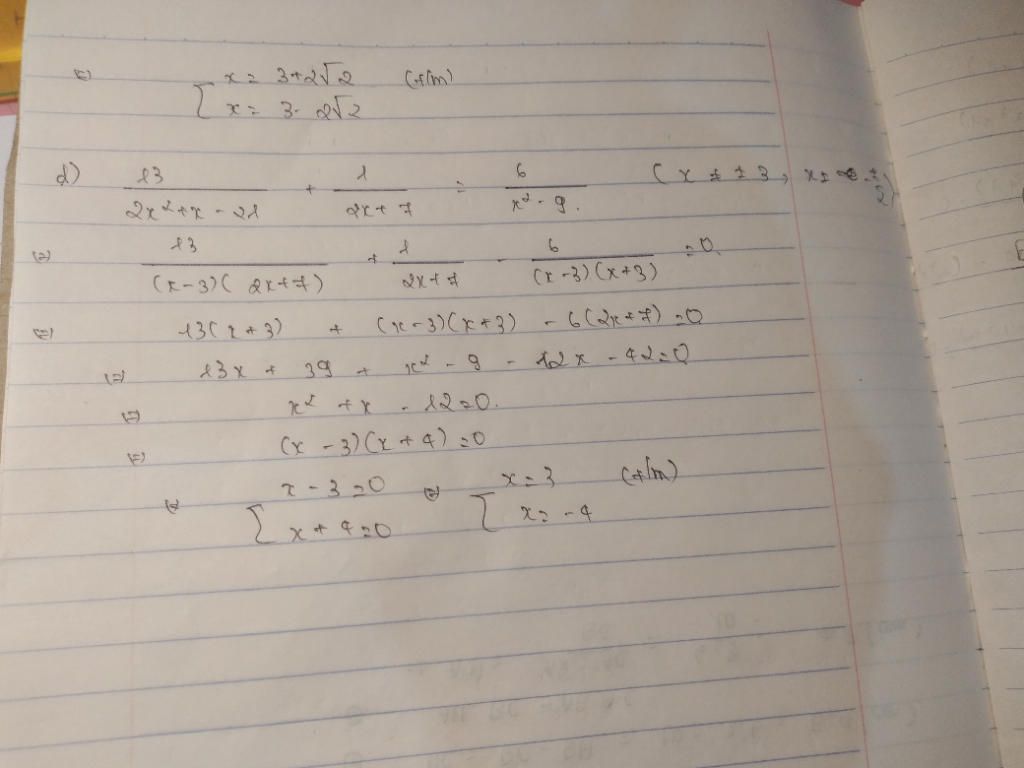 (=) [ x = 3+2√2 (t/m)
x = 3 - 2√2
d) 13/(2x²+x-21) + 1/(2x+7) = 6/(x²-9). (x ≠ ±3, x ≠ -7/2)
(=) 13/((x-3)(2x+7)) + 1/(2x+7) - 6/((x-3)(x+3)) = 0
(=) 13(x+3) + (x-3)(x+3) - 6(2x+7) = 0
(=) 13x + 39 + x² - 9 - 12x - 42 = 0
(=) x² + x - 12 = 0.
(=) (x-3)(x+4) = 0
(=) [ x - 3 = 0 (=) [ x = 3 (t/m)
x + 4 = 0 x = -4